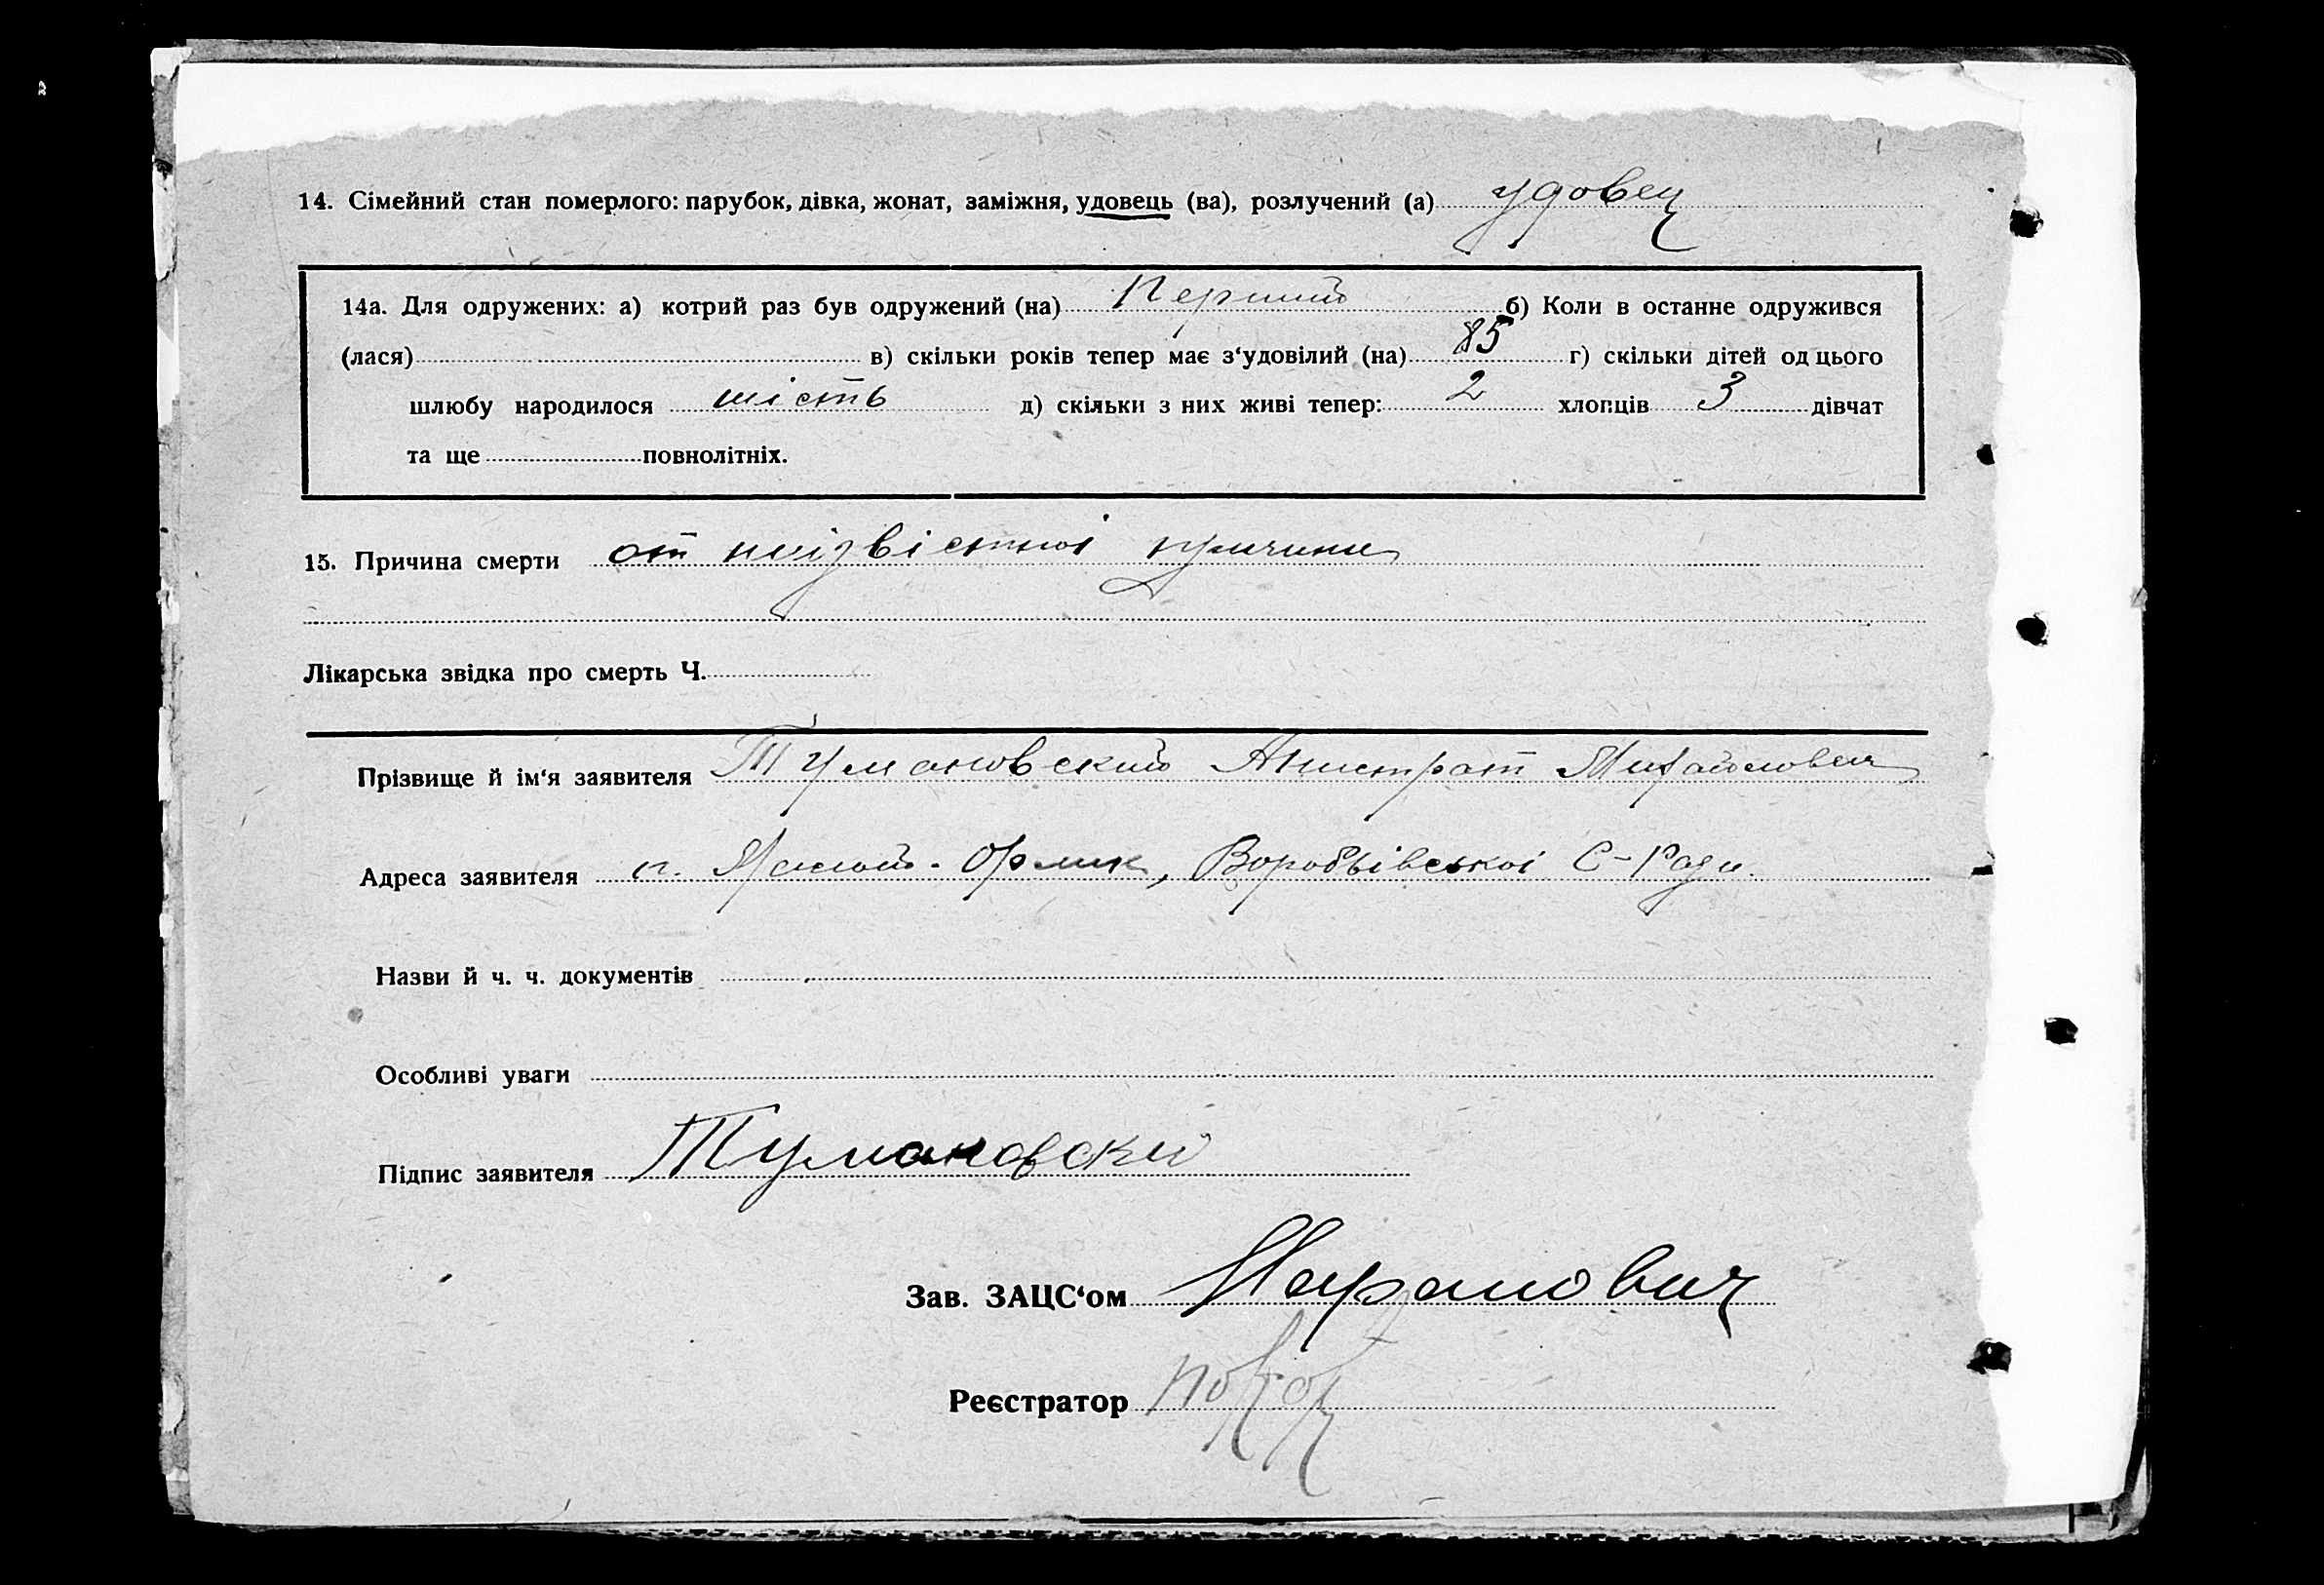 14. Сімейний стан померлого: парубок, дівка, жонат, заміжня, удовець (ва), розлучений (а) удовец
14а. Для одружених: а) котрий раз був одружений (на) Перший б) Коли в останне одружився
(лася) в) скільки років тепер має з‘удовілий (на) 85 г) скільки дітей од цього
шлюбу народилося шість д) скільки з них живі тепер: 2 хлопців 3 дівчат
та ще повнолітніх.
15. Причина смерти от неізвістноі причини
Лікарська звідка про смерть Ч.
Прізвище й ім‘я заявителя Тумановский Михайлович
Адреса заявителя Орлик, Воробьівськоі С-Ради.
Назви й ч. ч. документів
Особливі уваги
Підпис заявителя Тумановский
Зав. ЗАЦС‘ом
Реєстратор